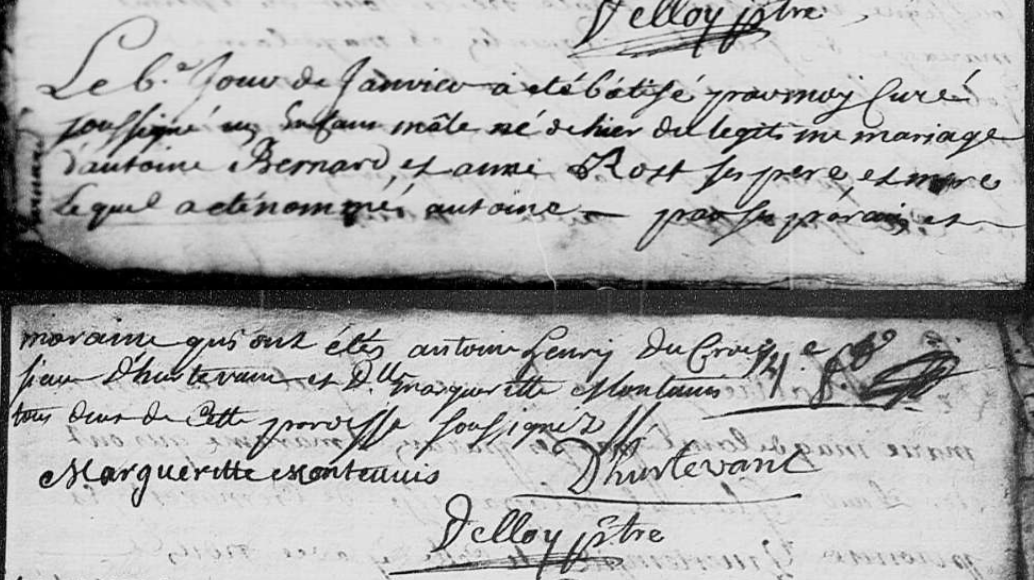 Delloy pstre
Le 6.e Jour de Janvier a été bâtisé par moy Curé
soussigné un Enfant mâle né de hier du legitime mariage
d'antoine Bernard, et anne Rost ses pere et mere
Lequel a eté nommé antoine par ses parain, et
maraine qui ont étés antoine henry Du Crocq
sieur D'hurtevant et D.lle margueritte Montenuis
tous deux de Cette paroisse soussignez
Margueritte Montenuis D'hurtevant
Delloy pstre